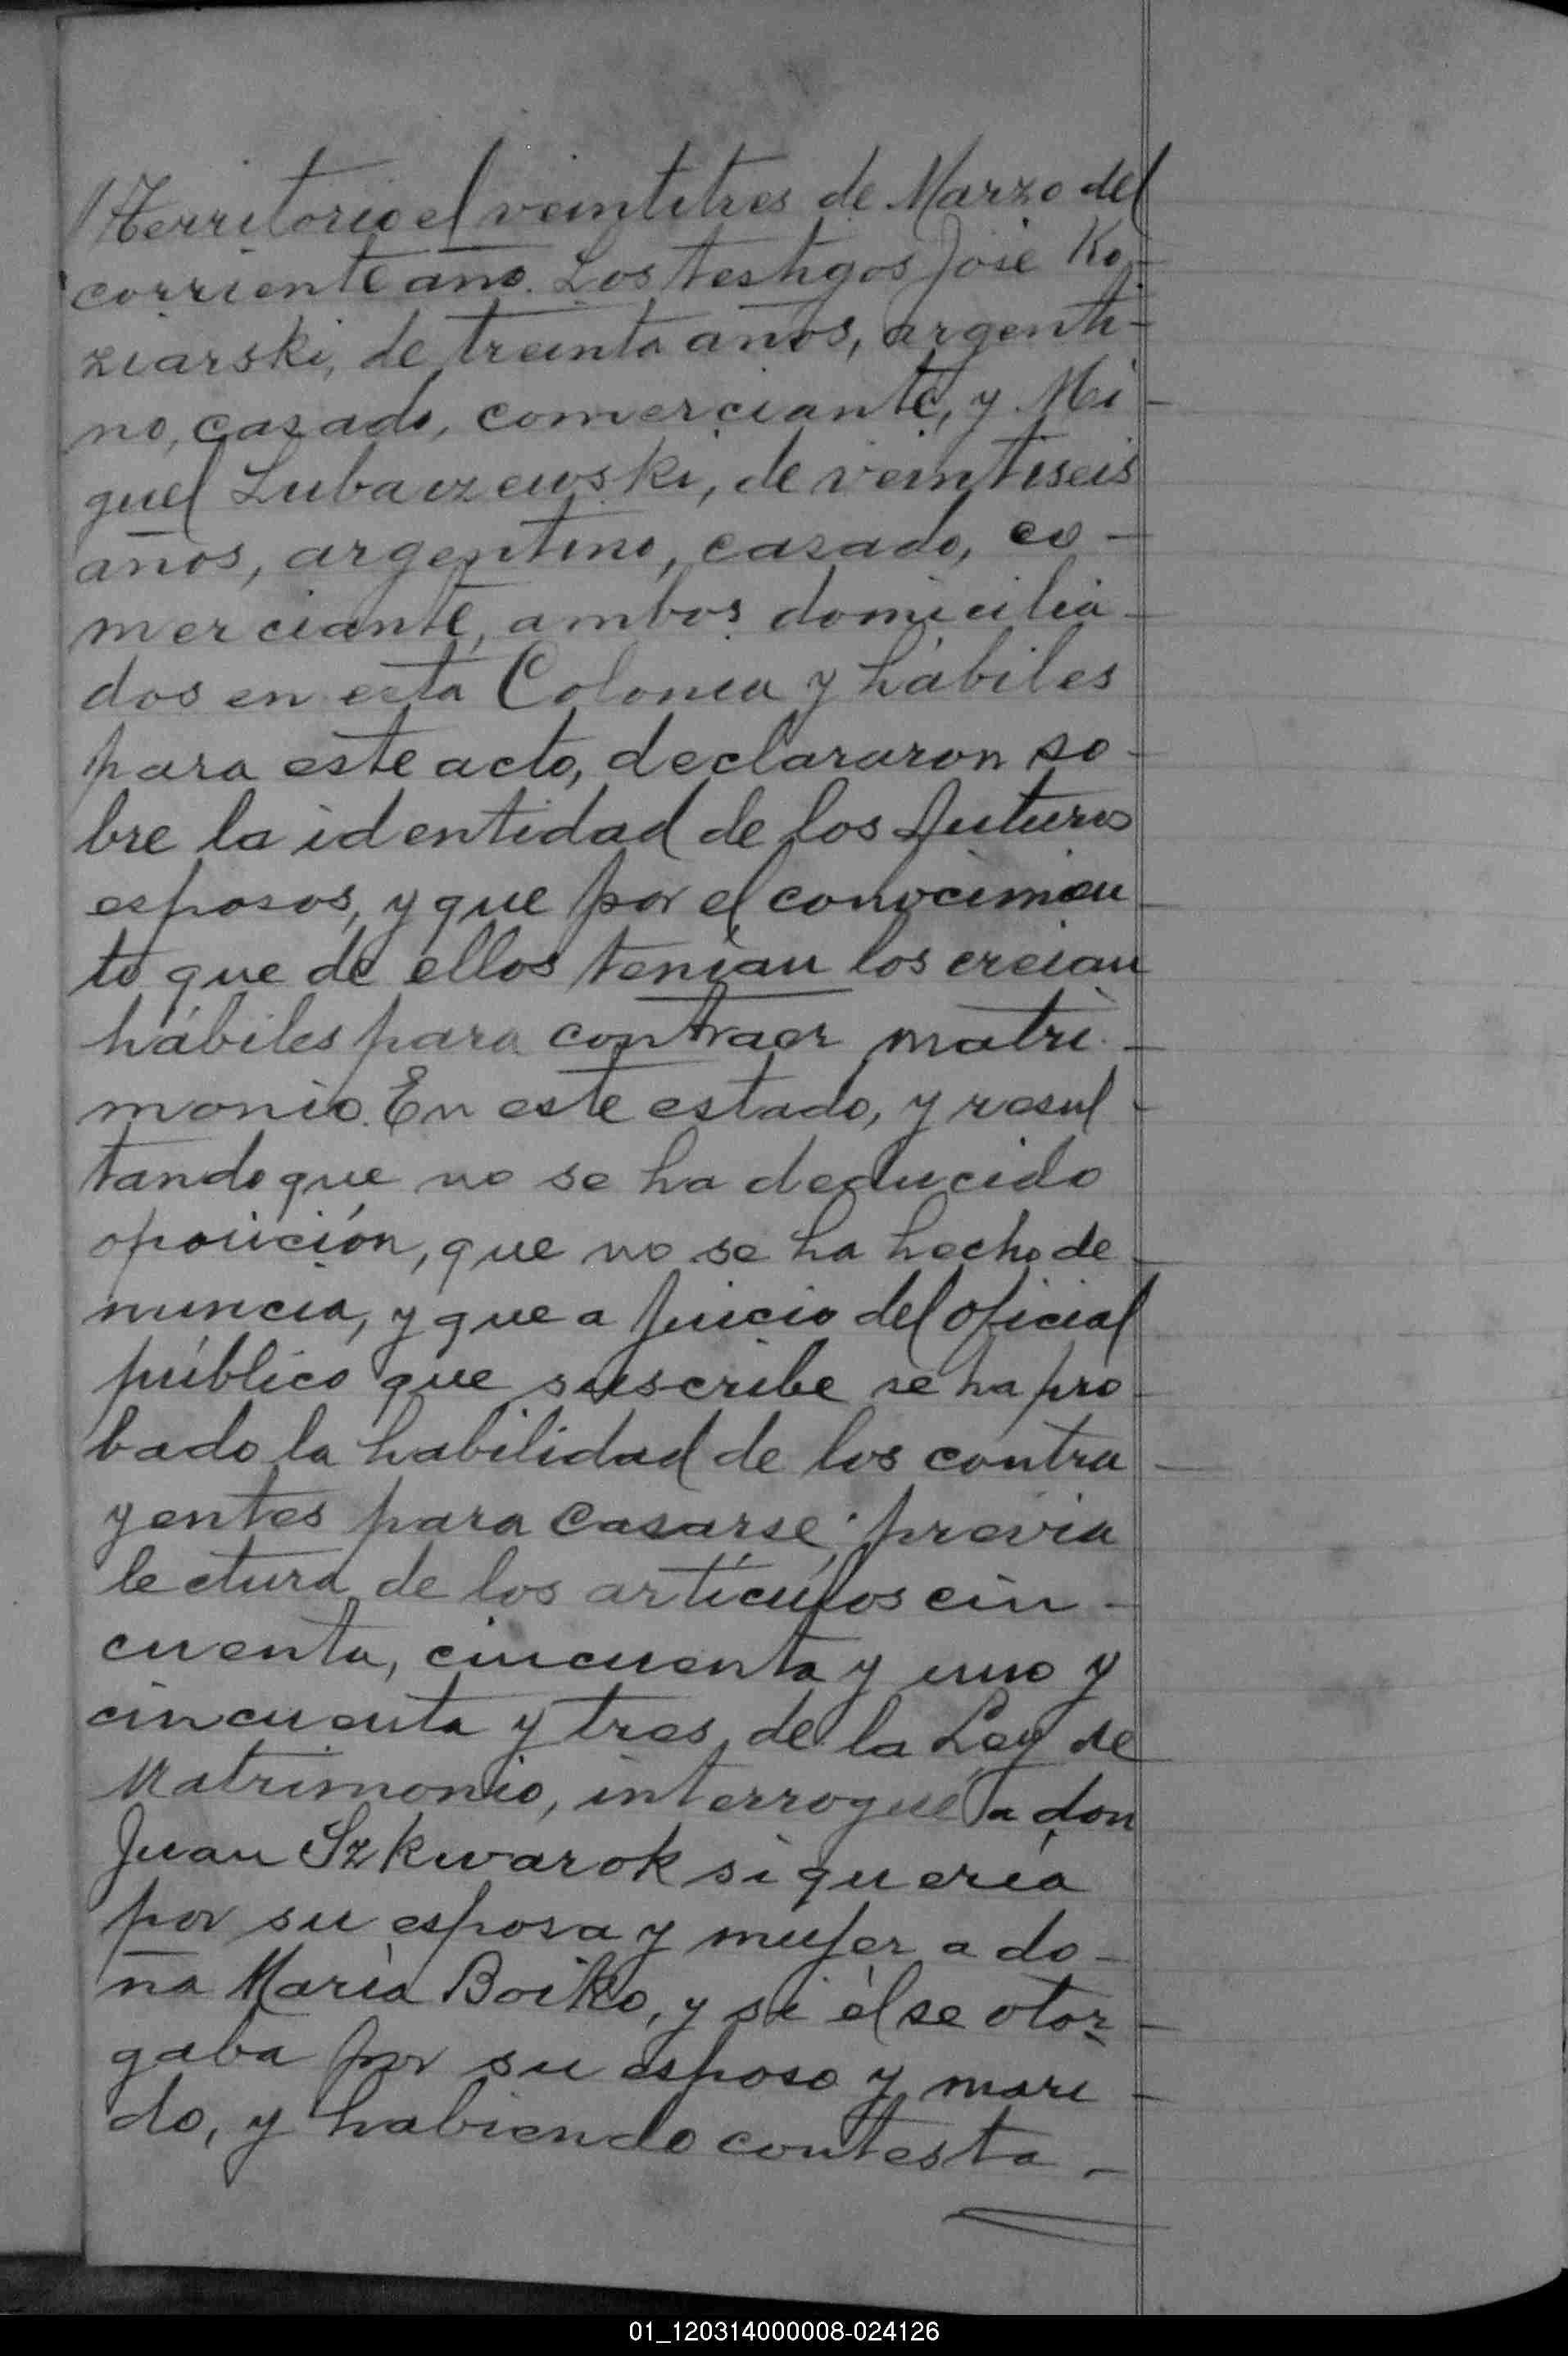 //Territorio el veintitres de Marzo del
corriente año. Los testigos José Ko-
ziarski, de treinta años, argenti-
no, casado, comerciante, y Mi-
guel Lubaczewski, de veintiseis
años, argentino, casado, co-
merciante, ambos domicilia-
dos en esta Colonia y hábiles
para este acto, declararon so-
bre la identidad de los futuros
esposos, y que por el conocimien-
to que de ellos tenían los creían
hábiles para contraer matri-
monio. En este estado, y resul-
tando que no se ha deducido
oposición, que no se ha hecho de-
nuncia, y que a juicio del oficial
público que suscribe se ha pro-
bado la habilidad de los contra-
yentes para casarse; previa
lectura de los artículos cin-
cuenta, cincuenta y uno y
cincuenta y tres de la Ley de
Matrimonio, interrogué a don
Juan Szkwarok si quería
por su esposa y mujer a do-
ña María Boiko, y si él se otor-
gaba por su esposo y mari-
do, y habiendo contesta-
01_120314000008-024126